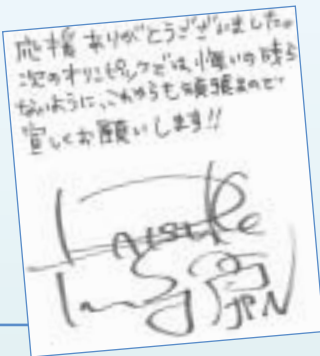 応援ありがとうございました。
次のオリンピックでは、悔いの残ら
ないように、これからも頑張るので
宜しくお願いします!!
JPN